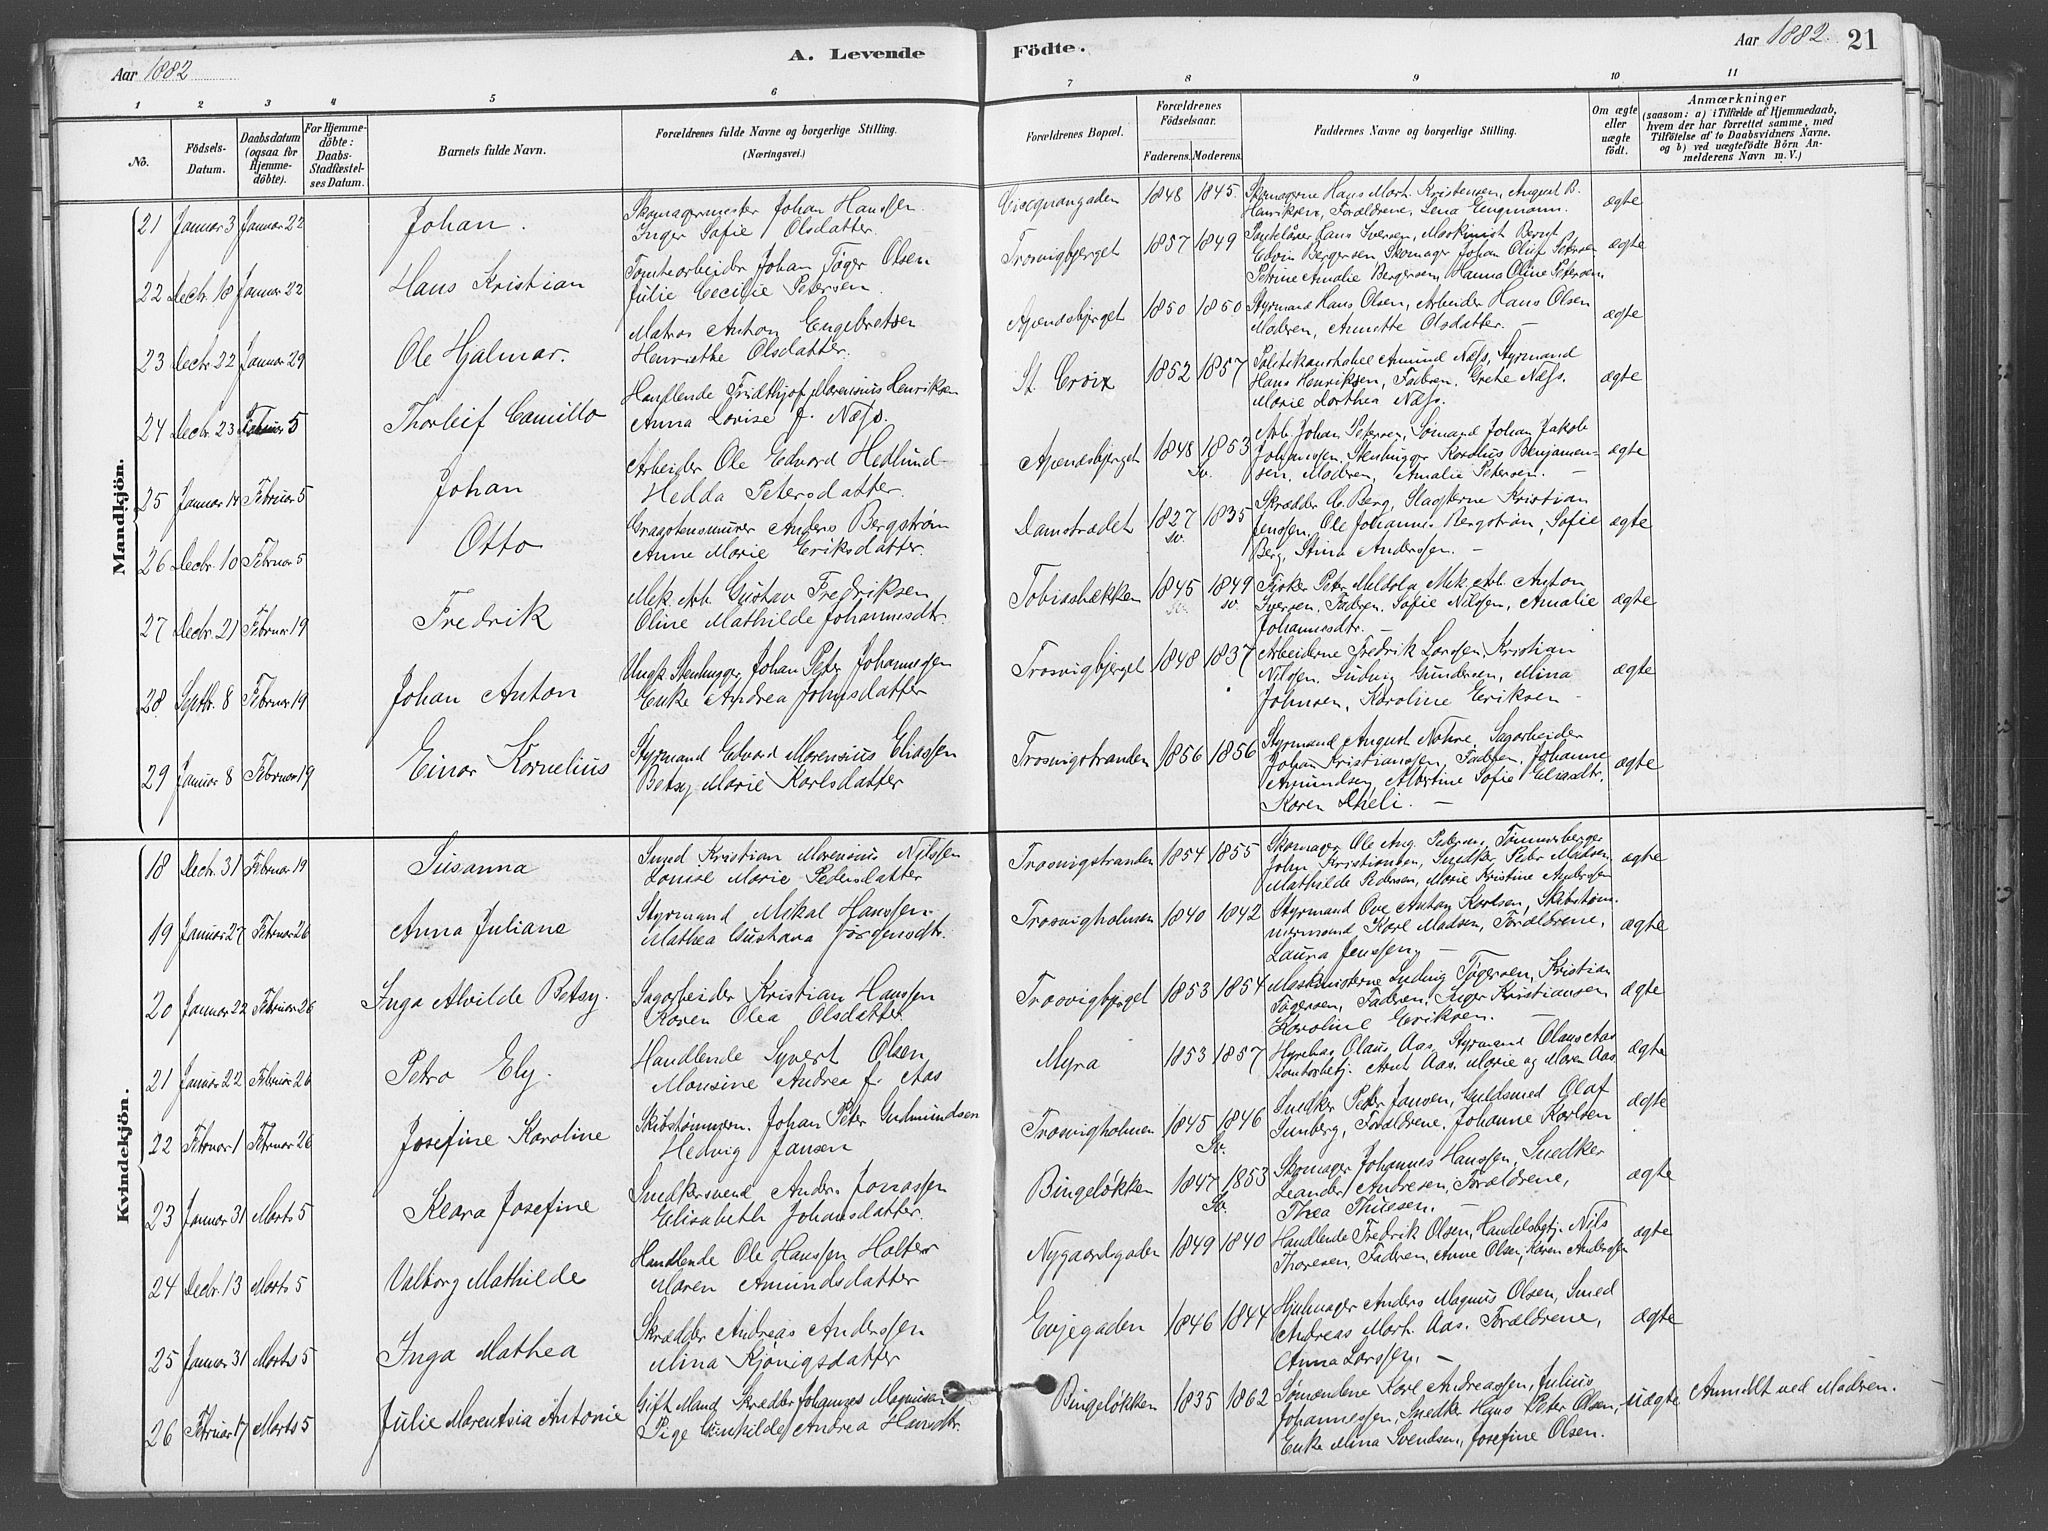 Aar 1882
A. Levende
Födte.
Aar 1882. 21
1 2 3 4 5 6 7 8 9 10 11
No.
Födsels-Datum.
Daabsdatum (ogsaa for Hjemmedöbte).
For Hjemmedöbte: Daabs-Stadfæstelses Datum.
Barnets fulde Navn.
Forældrenes fulde Navne og borgerlige Stilling.
(Næringsvei.)
Forældrenes Bopæl.
Forældrenes Födselsaar.
Faderens. Moderens.
Faddernes Navne og borgerlige Stilling.
Om ægte eller uægte födt.
Anmærkninger
(saasom: a) i Tilfælde af Hjemmedaab, hvem der har forrettet samme, med Tilföielse af to Daabsvidners Navne. og b) ved uægtefödte Börn Anmelderens Navn m. V.)
Mandkjön.
21 Januar 3 Januar 22 Johan. Skomagermester Johan Hanssen
Inger Sofie Olsdatter. 1848 1845. Skomagerne Hans Mort. Kristensen, August B.
Henriksen, Forældrene, Lena Engmann. ægte
22 Decbr. 18 Januar 22 Hans Kristian Tomtearbeider Johan Töger Olsen
Julie Cecilie Petersen. Trosvigbjerget 1857 1849 Hans Iversen, Maskinist Bernt
Edvin Bergersen Skomager Johan Oluf Petersen
Petrine Amalie Bergersen, Hanna Oline Petersen ægte
23 Decbr. 22 Januar 29 Ole Hjalmar. Matros Anton Engebretsen
Henriethe Olsdatter. Apenesbjerget 1850 1850 Styrmand Hans Olsen, Arbeider Hans Olsen
Moderen, Annette Olsdatter. – ægte
24 Decbr. 23 Februar 5 Thorleif Camillo Handlende Fridthjof Morensius Henriksen
Anna Lovise f. Næss. St. Croix 1852 1857 Politikonstabel Amund Næss, Styrmand
Hans Henriksen, Faderen, Grete Næss.
Marie Dorthea Næss. ægte
25 Januar 14 Februar 5 Johan Arbeider Ole Edvard Hedlund
Hedda Petersdatter. Apenesbjerget 1848 1853 Sv. Arb. Johan Petersen, Sömand Johan Jakob
Johanssen, Stenhugger Karolius Benjamen-
sen, Moderen, Amalie Petersen. – ægte
26 Decbr. 10 Februar 5 Otto Graastensmurer Anders Bergström
Anne Marie Eriksdatter. Damstrædet 1827 sv. 1835 Skrædder C. Berg, Slagterne Kristian
Jenssen, Ole Johannes Bergström, Sofie
Berg, Stina Anderssen. – ægte
27 Decbr. 21 Februar 19 Fredrik Mek. Arb. Gustav Fredriksen
Oline Mathilde Johannesdtr. Tobiasbækken 1845 sv. 1849 sv. Peter Mek. Arb. Anton
Iversen, Faderen, Sofie Nilssen, Amalie
Johannesdtr. – ægte
28 Septbr. 8 Februar 19 Johan Anton Ungk. Stenhugger Johan Peter Johannessen
Enke Andrea Johnsdatter Trosvigbjerget 1848 1837 Arbeiderne Fredrik Larssen, Kristian
Nilssen, Ludvig Gundersen, Mina
Johnsen, Karoline Eriksen – ægte
29 Januar 8 Februar 19 Einar Kornelius Styrmand Edvard Morensius Eliassen
Betsy Marie Karlsdatter Trosvigstranden 1856 1856 Styrmand August Sagarbeider
Johan Kristianssen, Faderen, Johanne
Amundsen, Albertine Sofie Eliasdtr.
Karen – ægte
Kvindekjön.
18 Decbr. 31 Februar 19 Susanna Smed Kristian Morensius Nilssen
Louise Marie Pedersdatter Trosvigstranden 1854 1855 Skomager Ole Aug. Petersen, Tömmerberger
John Kristiansen, Snedker Peter Madsen
Mathilde Pedersen, Marie Kristine Anderssen ægte
19 Januar 27 Februar 26 Anna Juliane Styrmand Mikal Hanssen.
Mathea Gustava Jörgensdtr. Trosvigholmen 1840 1842 Styrmand Ove Anton Karlsen, Skibstöm-
mermand Karl Madsen, Forældrene,
Laura Jenssen – ægte
20 Januar 22 Februar 26 Inga Alvilde Betsy. Sagarbeider Kristian Hanssen
Karen Olea Olsdatter. Trosvigbjerget 1853 1854 Maskinisterne Ludvig Tögersen, Kristian
Tögersen, Faderen, Inger Kristiansen
Karoline Eriksen. – ægte
21 Januar 22 Februar 26 Petra Ely. Handlende Syvert Olsen
Monsine Andrea f. Aas Myra 1853 1857 Olaus Aas, Styrmand Olaus Aas
Kontorbetj. Arnt Aas. Marie og Maren Aas. ægte
22 Februar 1 Februar 26 Josefine Karoline Skibstömmerm. Johan Peter Gudmundsen
Hedvig Jansen Trosvigholmen 1845 1846 Sv. Snedker Peter Jansen, Guldsmed Olaf
Sunberg, Forældrene, Johanne Karlsen ægte
23 Januar 31 Marts 5 Klara Josefine Snedkersvend Anders Jonassen
Elisabeth Johansdatter. Bingeløkken 1847 1853 Sv. Skomager Johannes Hanssen, Snedker
Leander Andresen, Forældrene,
Thea Thuesen. – ægte
24 Decbr. 13 Marts 5 Valborg Mathilde Handlende Ole Hanssen Holter
Maren Amundsdatter Nygaardsgaden 1849 1840 Handlende Fredrik Olsen, Handelsbetj. Nils
Thoresen, Faderen, Anne Olsen, Karen Anderssen ægte
25 Januar 31 Marts 5 Inga Mathea Skrædder Andreas Anderssen
Mina Kjönigsdatter Evjegaden 1846 1844 Hjulmager Anders Magnus Olsen, Smed
Andreas Mort. Aas. Forældrene,
Anna Larssen. – ægte
26 Februar 17 Marts 5 Julie Marentsia Antonie Gift Mand Skrædder Johannes Magnusen
Pige Gunhilde Andrea Hansdtr. Bingeløkken 1835 1862 Sömændene Karl Andreassen, Julius
Johannessen, Snedker Hans Peter Olsen,
Enke Mina Svendsen, Josefine Olsen. uægte Anmeldt ved Moderen.